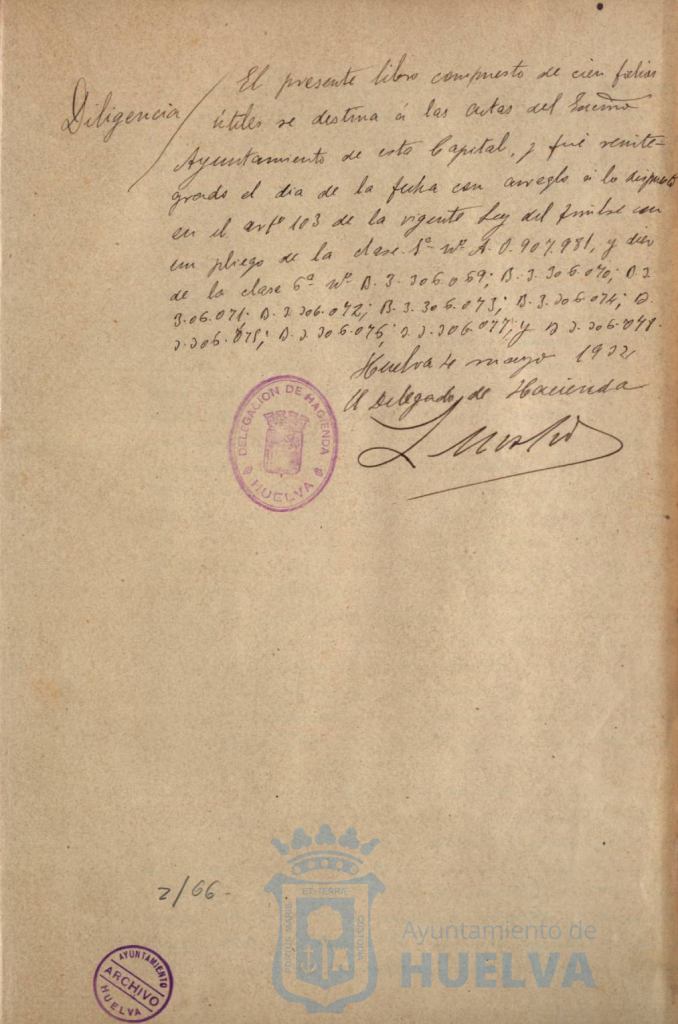 Diligencia
El presente libro compuesto de cien folios
útiles se destina á las actas del Excmo
Ayuntamiento de esta Capital, y fué reinte-
grado el dia de la fecha con arreglo á lo dispuesto
en el artº 103 de la vigente Ley del timbre con
un pliego de la clase 1ª nº A.0.907.981, y diez
de la clase 6ª nº B.3.306.069; B.3.306.070; B.3.
306.071; B.3.306.072; B.3.306.073; B.3.306.074; B.
3.306.075; B.3.306.076; B.3.306.077; y B.3.306.078.
Huelva 4 mayo 1932
El Delegado de Hacienda
DELEGACION DE HACIENDA
HUELVA
2/66-
AYUNTAMIENTO
ARCHIVO
HUELVA
PORTUS MARIS
ET TERRÆ
CUSTODIA
Ayuntamiento de
HUELVA